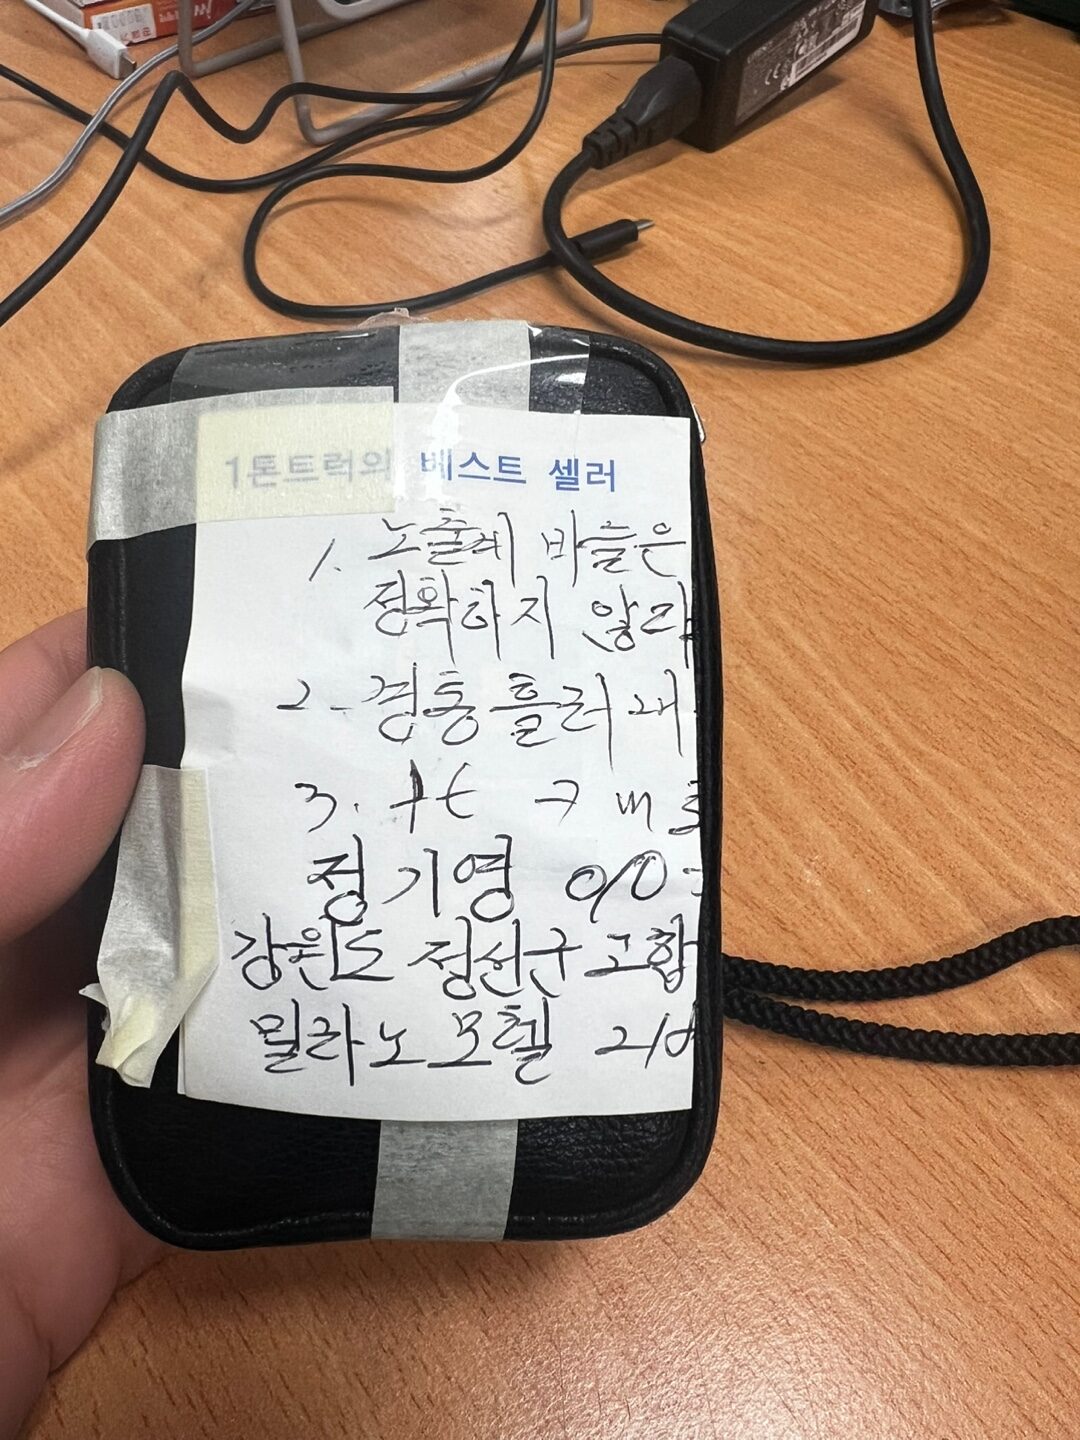 1톤트럭의 베스트 셀러
1. 노출계 바늘은
정확하지 않고
2. 경통 흘러내
3.
정기영 010-
강원도 정선군 고합
밀라노모텔 21